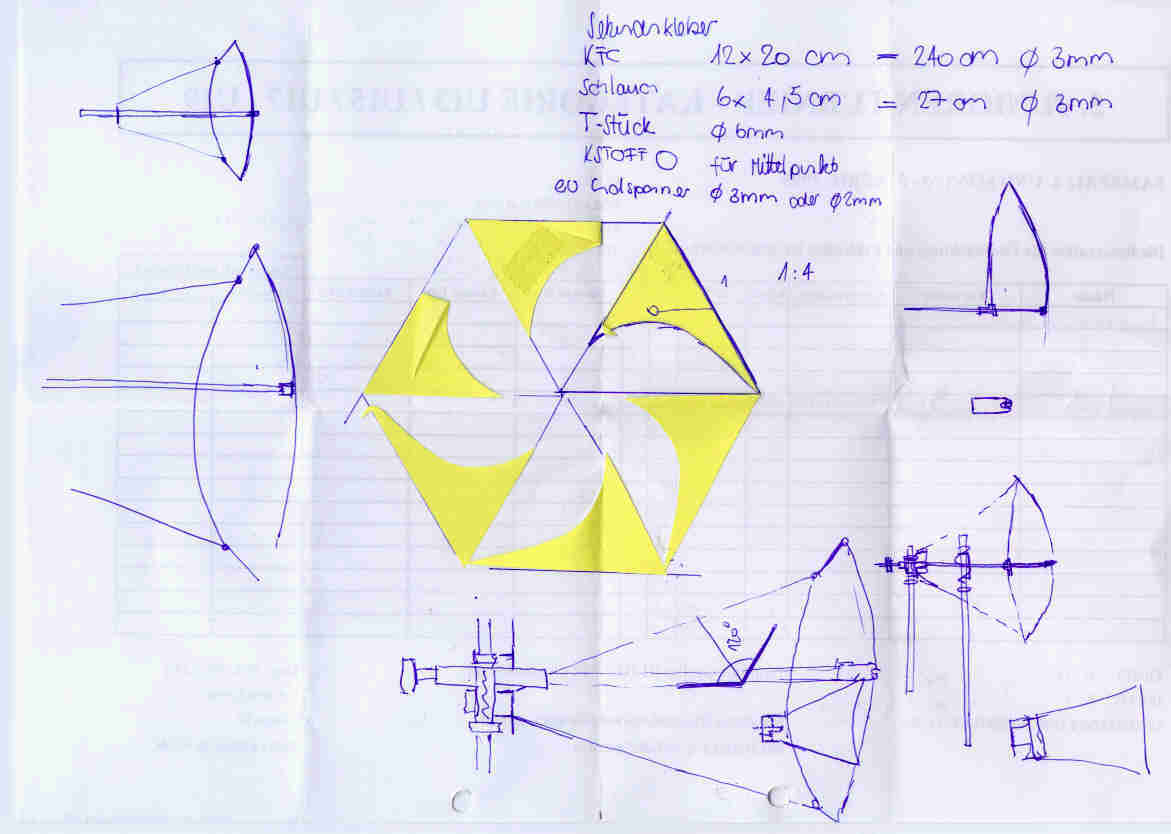 Sekundenkleber
KFC 12 x 20 cm = 240 cm ϕ 3mm
Schlauch 6x 4,5 cm = 27 cm ϕ 3mm
T-Stück ϕ 6mm
KSTOFF O für Mittelpunkt
ev Endspanner ϕ 3mm oder ϕ 2mm
1 1:4
120°